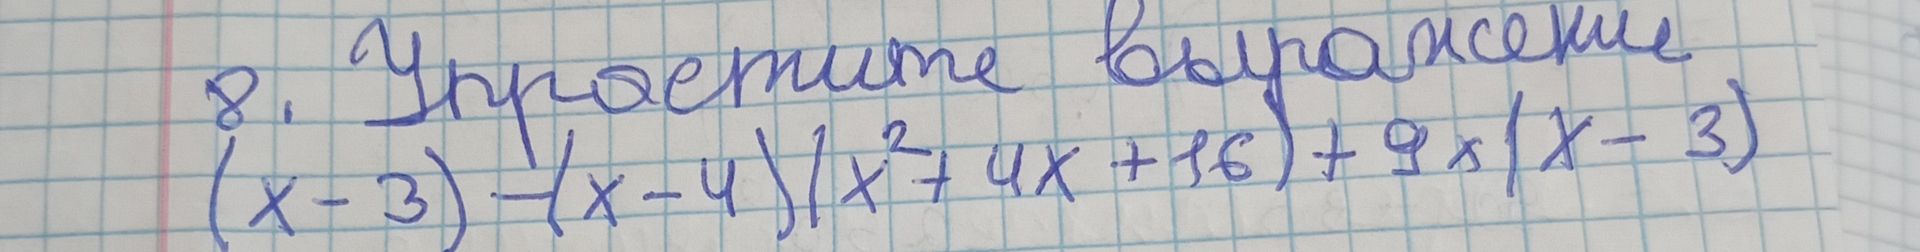 8. Упростите выражение
(x-3)-(x-4)(x²+4x+16)+9x(x-3)